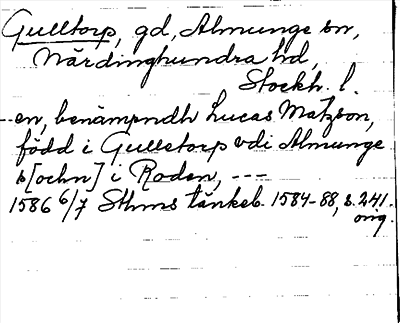 Gulltorp, gd, Almunge sn,
Närdinghundra hd,
Stockh. l.
--en, benämpndh Lucas Matzson,
född i Gulletorp vdi Almunge
s[ochn] i Roden, ---
1586 6/7 Sthms tänkeb. 1584-88, s. 241.
orig.